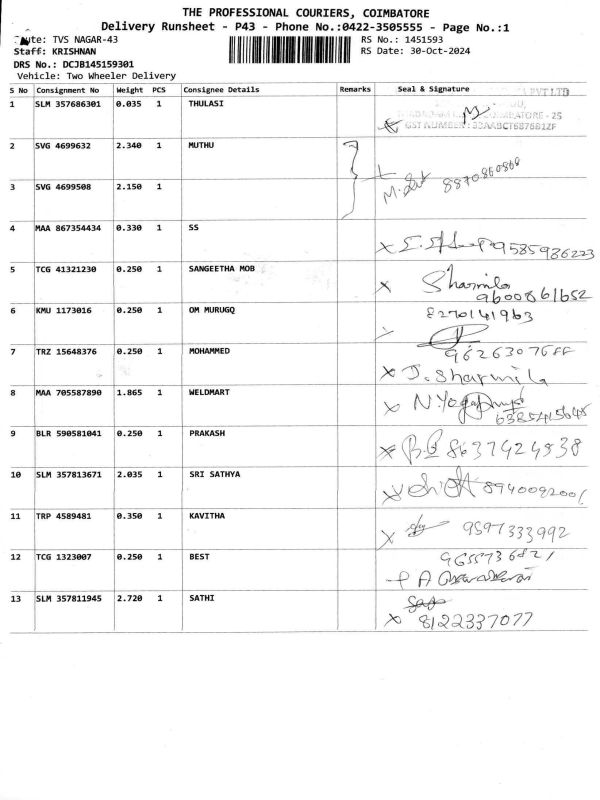 THE PROFESSIONAL COURIERS, COIMBATORE
Delivery Runsheet - P43 - Phone No.:0422-3505555 - Page No.:1
Route: TVS NAGAR-43
RS No.: 1451593
Staff: KRISHNAN
RS Date: 30-Oct-2024
DRS No.: DCJB145159301
Vehicle: Two Wheeler Delivery
S No Consignment No Weight PCS Consignee Details Remarks Seal & Signature
PVT LTD
1 SLM 357686301 0.035 1 THULASI
COIMBATORE - 25
GST NUMBER : 33AABCT6876B1ZF
2 SVG 4699632 2.340 1 MUTHU
8870860868
3 SVG 4699508 2.150 1
4 MAA 867354434 0.330 1 SS
9585936223
5 TCG 41321230 0.250 1 SANGEETHA MOB
Sharmila
9600861652
6 KMU 1173016 0.250 1 OM MURUGQ
8270141963
7 TRZ 15648376 0.250 1 MOHAMMED
J. Sharmila
8 MAA 705587890 1.865 1 WELDMART
9 BLR 590581041 0.250 1 PRAKASH
8637424538
10 SLM 357813671 2.035 1 SRI SATHYA
8940092006
11 TRP 4589481 0.350 1 KAVITHA
9597333992
12 TCG 1323007 0.250 1 BEST
13 SLM 357811945 2.720 1 SATHI
8122337077